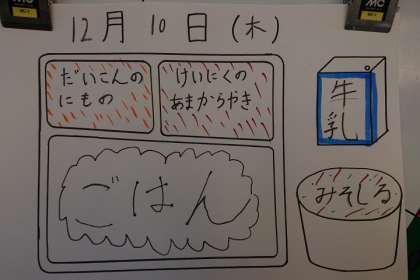 12月10日(木)
だいこんの
にもの
けいにくの
あまからやき
牛
乳
ごはん
みそしる